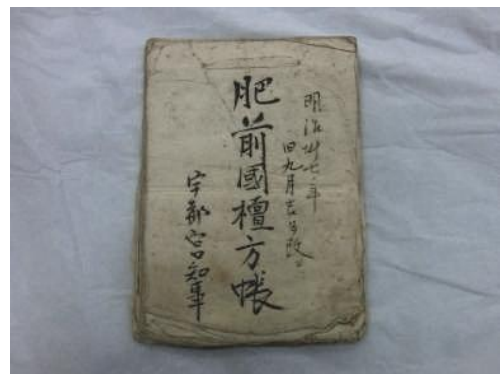 明治卅七年
旧九月吉日改
肥前國檀方帳
宇都宮知事